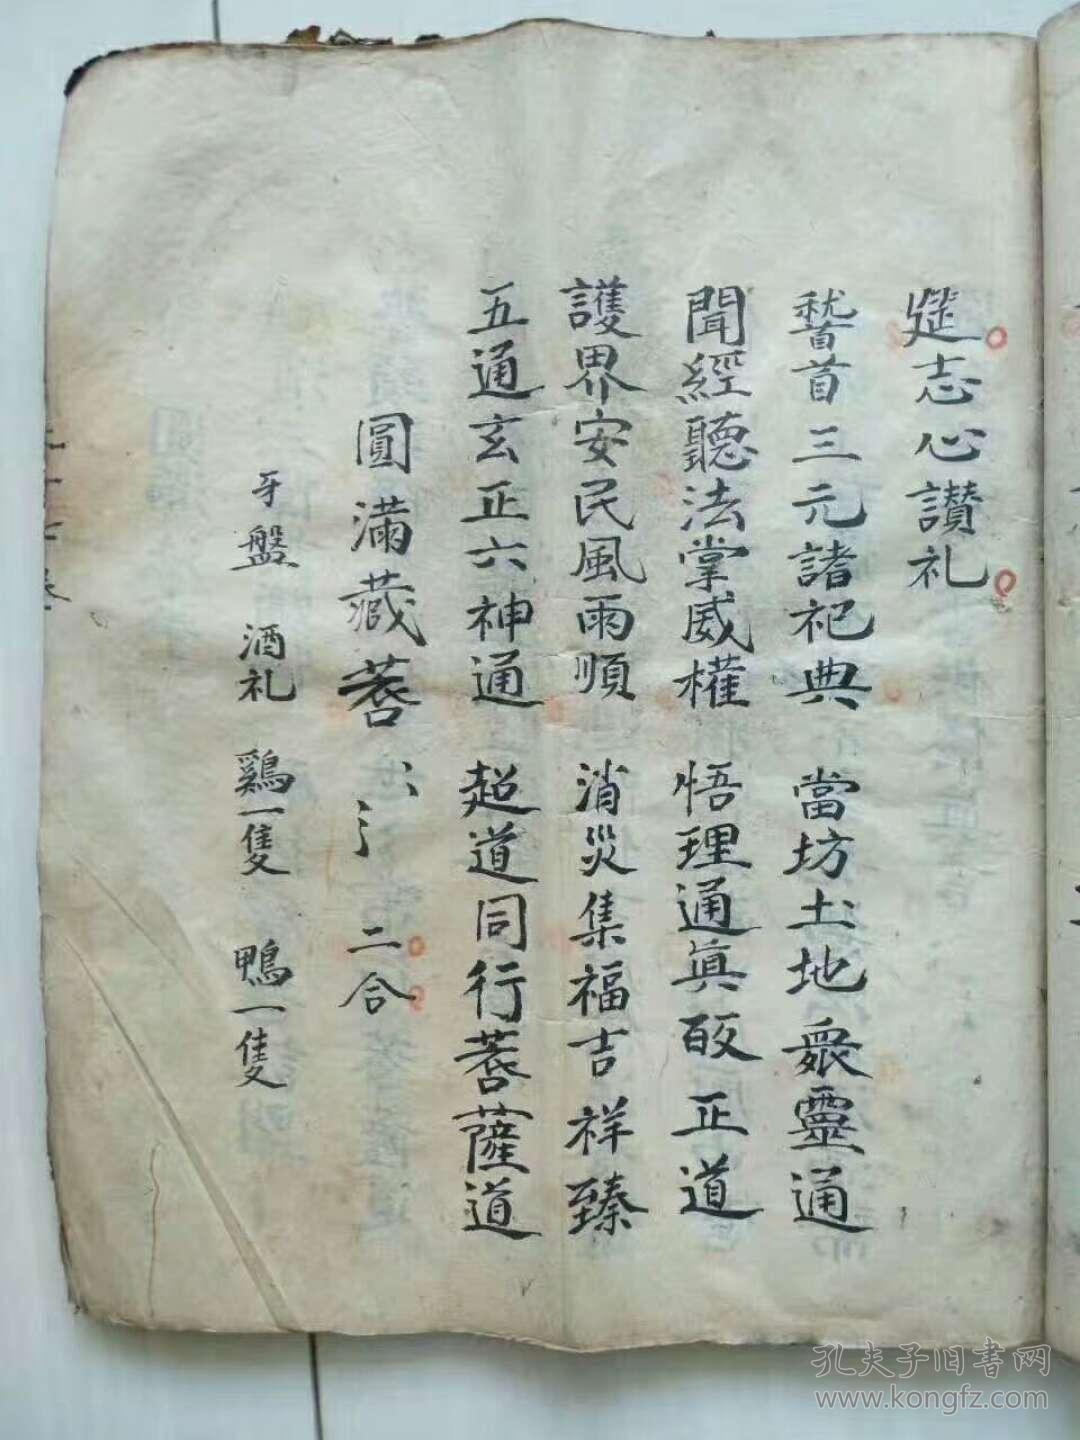 筵志心讚礼
稽首三元諸祀典 當坊土地衆靈通
聞經聽法掌威權 悟理通真皈正道
護界安民風雨順 消災集福吉祥臻
五通玄正六神通 超道同行菩薩道
圓滿藏菩 二合
牙盤 酒礼 鷄一隻 鴨一隻
孔夫子旧書网
www.kongfz.com